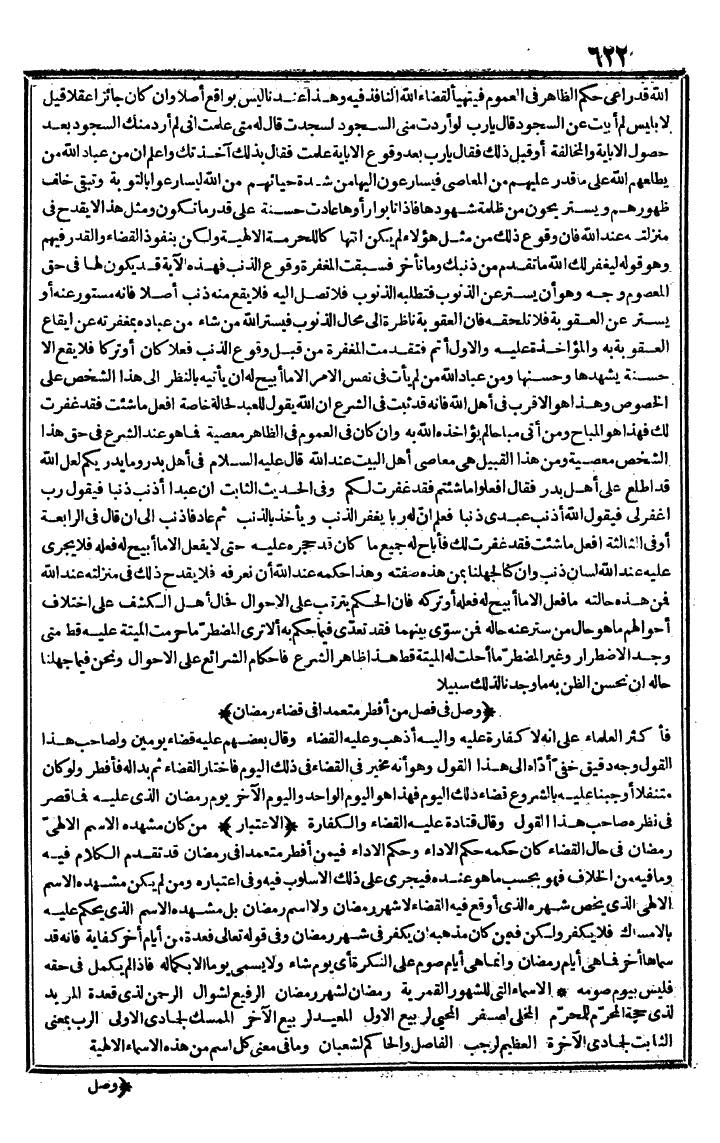 ٦٢٢
الله قد راعى حكم الظاهر فى العموم فيتهيأ القضاء الله النافذ فيه وهذا عندنا ليس بواقع أصلا وان كان جائزا عقلا قيل
لابليس لم أبيت عن السجود قال يارب لو أردت منى السجود لسجدت قال له متى علمت انى لم أرد منك السجود بعد
حصول الاباية والمخالفة أو قبل ذلك فقال يارب بعد وقوع الاباية علمت فقال بذلك آخذتك واعلم ان من عباد الله من
يطلعهم الله على ما قدر عليهم من المعاصى فيسارعون اليها من شدة حيائهم من الله ليسارعوا بالتوبة وتبقى خلف
ظهورهم ويستريحون من ظلمة شهودها فاذا تابوا رأوها عادت حسنة على قدر ما تكون ومثل هذا لا يقدح فى
منزلته عند الله فان وقوع ذلك من مثل هؤلاء لم يكن انتهاكا للحرمة الالهية ولكن بنفوذ القضاء والقدر فيهم
وهو قوله ليغفر لك الله ما تقدم من ذنبك وما تأخر فسبقت المغفرة وقوع الذنب فهذه الآية قد يكون لها فى حق
المعصوم وجه وهو أن يستر عن الذنوب فتطلبه الذنوب فلا تصل اليه فلا يقع منه ذنب أصلا فانه مستور عنه أو
يستر عن العقوبة فلا تلحقه فان العقوبة ناظرة الى محال الذنوب فيستر الله من شاء من عباده بمغفرته عن ايقاع
العقوبة به والمؤاخذة عليه والاول أتم فتقدمت المغفرة من قبل وقوع الذنب فعلا كان أو تركا فلا يقع الا
حسنة يشهدها وحسنها ومن عباد الله من لم يأت فى نفس الامر الا ما أبيح له ان يأتيه بالنظر الى هذا الشخص على
الخصوص وهذا هو الاقرب فى أهل الله فانه قد ثبت فى الشرع ان الله يقول للعبد لحالة خاصة افعل ما شئت فقد غفرت
لك فهذا هو المباح ومن أتى مباحا لم يؤاخذه الله به وان كان فى العموم فى الظاهر معصية فما هو عند الشرع فى حق هذا
الشخص معصية ومن هذا القبيل هى معاصى أهل البيت عند الله قال عليه السلام فى أهل بدر وما يدريكم لعل الله
قد اطلع على أهل بدر فقال افعلوا ما شئتم فقد غفرت لكم وفى الحديث الثابت ان عبدا أذنب ذنبا فيقول رب
اغفر لى فيقول الله أذنب عبدى ذنبا فعلم ان له ربا يغفر الذنب ويأخذ بالذنب ثم عاد فاذنب الى ان قال فى الرابعة
أو فى الثالثة افعل ما شئت فقد غفرت لك فأباح له جميع ما كان قد حجره عليه حتى لا يفعل الا ما أبيح له فعله فلا يجرى
عليه عند الله لسان ذنب وان كنا لجهلنا بمن هذه صفته وهذا حكمه عند الله أن نعرفه فلا يقدح ذلك فى منزلته عند الله
فمن هذه حالته ما فعل الا ما أبيح له فعله أو تركه فان الحكم يترتب على الاحوال فحال أهل الكشف على اختلاف
أحوالهم ما هو حال من ستر عنه حاله فمن سوّى بينهما فقد تعدّى فيما حكم به ألا ترى المضطرّ ما حرمت الميتة عليه قط متى
وجد الاضطرار وغير المضطرّ ما أحلت له الميتة قط هذا ظاهر الشرع فاحكام الشرائع على الاحوال ونحن فيما جهلنا
حاله ان نحسن الظن به ما وجدنا لذلك سبيلا
﴿وصل فى فصل من أفطر متعمدا فى قضاء رمضان﴾
فأكثر العلماء على انه لا كفارة عليه واليه أذهب وعليه القضاء وقال بعضهم عليه قضاء يومين ولصاحب هذا
القول وجه دقيق خفىّ أدّاه الى هذا القول وهو أنه مخير فى القضاء فى ذلك اليوم فاختار القضاء ثم بدا له فأفطر ولو كان
متنفلا أوجبنا عليه بالشروع قضاء ذلك اليوم فهذا هو اليوم الواحد واليوم الآخر يوم رمضان الذى عليه فما قصر
فى نظره صاحب هذا القول وقال قتادة عليه القضاء والكفارة ﴿الاعتبار﴾ من كان مشهده الاسم الالهىّ
رمضان فى حال القضاء كان حكمه حكم الاداء وحكم الاداء فيمن أفطر متعمدا فى رمضان قد تقدم الكلام فيه
وما فيه من الخلاف فهو بحسب ما هو عنده فيجرى على ذلك الاسلوب فيه وفى اعتباره ومن لم يكن مشهده الاسم
الالهى الذى يخص شهره الذى أوقع فيه القضاء لا شهر رمضان ولا اسم رمضان بل مشهده الاسم الذى يحكم عليه
بالامساك فلا يكفر ولكن فمن كان مذهبه ان يكفر فى شهر رمضان وفى قوله تعالى فعدة من أيام أخر كفاية فانه قد
سماها أخر فما هى أيام رمضان وانما هى أيام صوم على النكرة أى يوم شاء ولا يسمى يوما الا بكماله فاذا لم يكمل فى حقه
فليس بيوم صومه * الاسماء التى للشهور القمرية رمضان لشهر رمضان الرفيع لشوال الرحمن لذى قعدة المريد
لذى حجة المحرّم للمحرّم المخلى لصفر المحيى لربيع الاول المعيد لربيع الآخر الممسك لجادى الاولى الرب بمعنى
الثابت لجادى الآخرة العظيم لرجب الفاصل والحاكم لشعبان وما فى معنى كل اسم من هذه الاسماء الالهية
﴿وصل